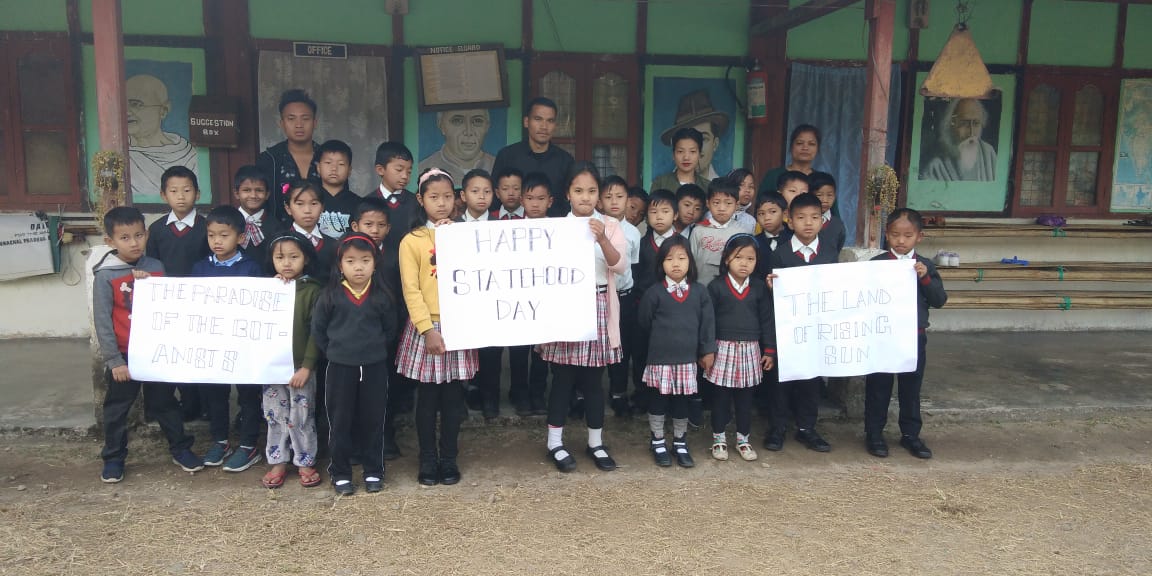 OFFICE
NOTICE BOARD
SUGGESTION
BOX
THE PARADISE
OF THE BOT-
ANISTS
HAPPY
STATEHOOD
DAY
THE LAND
OF RISING
SUN